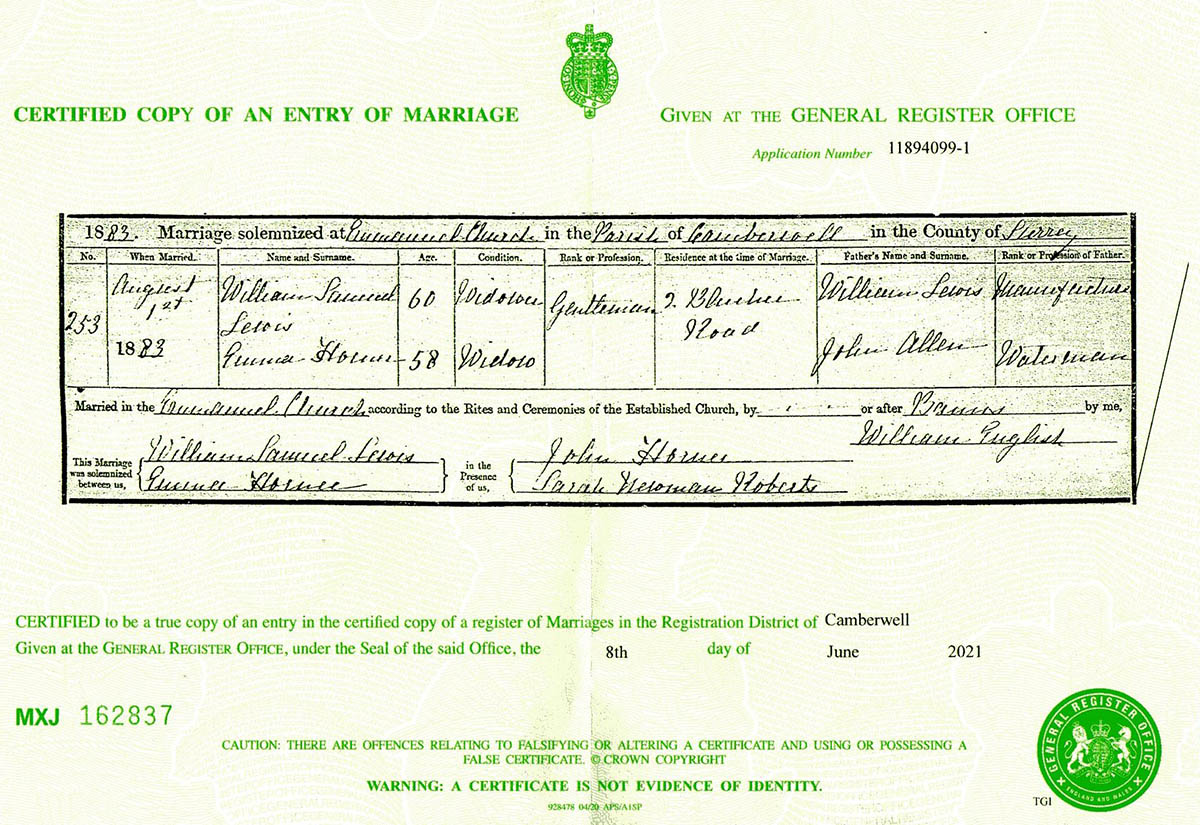 CERTIFIED COPY OF AN ENTRY OF MARRIAGE
GIVEN AT THE GENERAL REGISTER OFFICE
Application Number 11894099-1
1883. Marriage solemnized at Emmanuel Church in the Parish of Camberwell in the County of Surrey
No. When Married. Name and Surname. Age. Condition. Rank or Profession. Residence at the time of Marriage. Father's Name and Surname. Rank or Profession of Father.
253 August 1st 1883 William Samuel Lewis 60 Widower Gentleman 2 Road William Lewis Manufacturer
Emma Horner 58 Widow John Allen Waterman
Married in the Emmanuel Church according to the Rites and Ceremonies of the Established Church, by or after Banns by me,
William English
This Marriage was solemnized between us, William Samuel Lewis Emma Horner in the Presence of us, John Horner Sarah Newman Roberts
CERTIFIED to be a true copy of an entry in the certified copy of a register of Marriages in the Registration District of Camberwell
Given at the GENERAL REGISTER OFFICE, under the Seal of the said Office, the 8th day of June 2021
MXJ 162837
CAUTION: THERE ARE OFFENCES RELATING TO FALSIFYING OR ALTERING A CERTIFICATE AND USING OR POSSESSING A
FALSE CERTIFICATE. © CROWN COPYRIGHT
WARNING: A CERTIFICATE IS NOT EVIDENCE OF IDENTITY.
928478 04/20 APS/A1SP
GENERAL REGISTER OFFICE
ENGLAND AND WALES
TGI